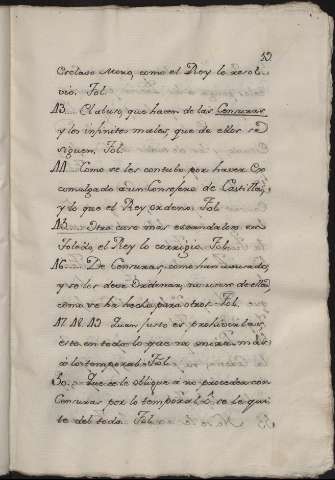 Esclavo Moro, como el Rey lo resol-
vió. Fol.
43. El abuso, que hacen de las Censuras
y los infinitos males, que de ellos se
siguen. Fol.
44. Como se les contubo por haver Ex
comulgado à un Consejero de Castilla,
y lo que el Rey ordenó. Fol.
45. Otro caso más escandaloso en
Toledo, el Rey lo corrigió. Fol.
46. De Censuras, como han usado,
y se les deve Ordenar, no usen de ellas,
como se ha hecho para otros. Fol.
47. 48. 49 Quan justo es prohivirlas
esto en todo lo que no mira mas
à los temporal. Fol.
50. Que se le obligue à no proceder con
Censuras por lo temporal, ò se le qui
te del todo. Fol.